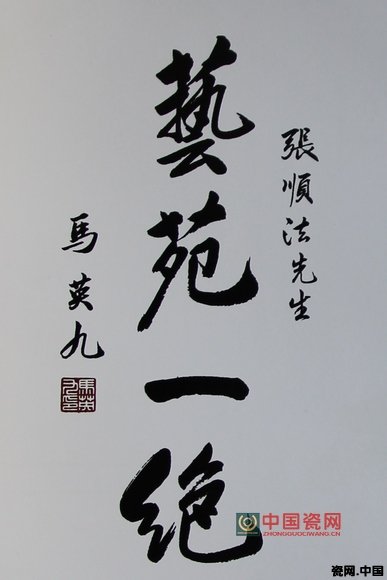 張順法先生
藝苑一絕
馬英九
中国瓷网
ZHONGGUOLIWANG.CN
瓷网.中国